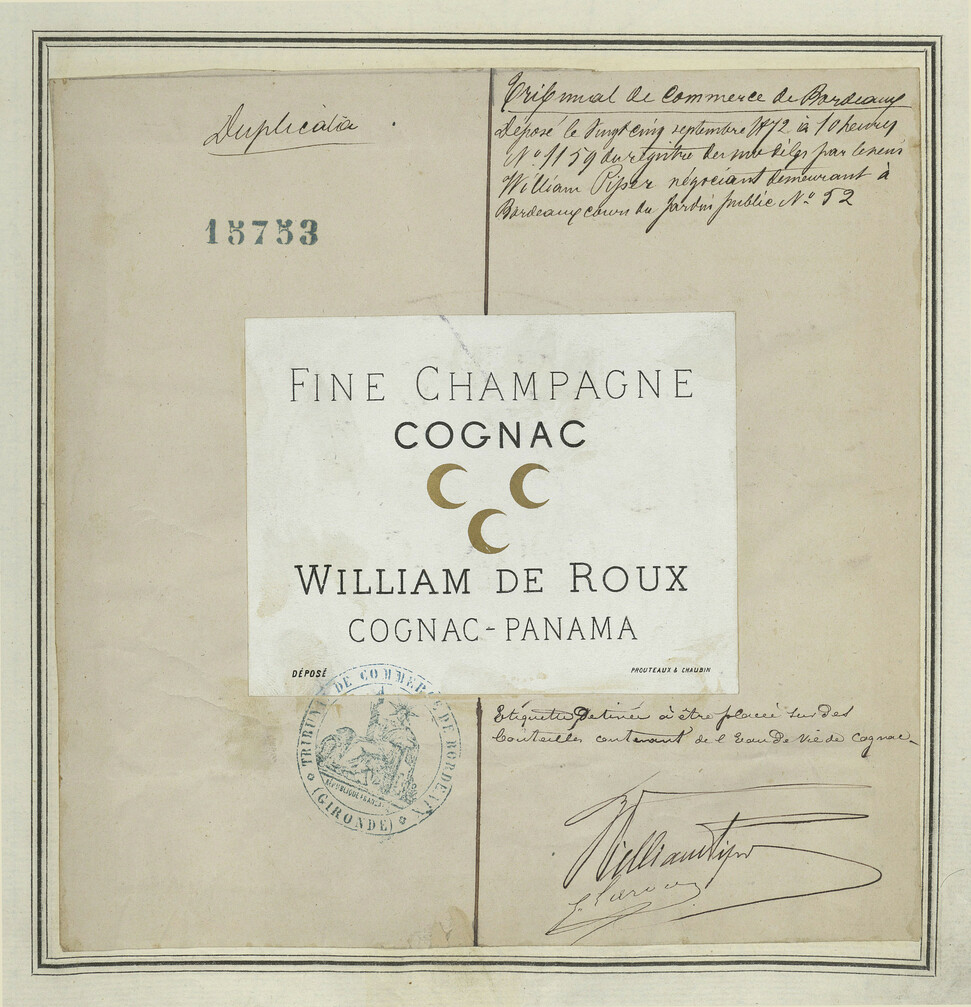 Duplicata
15753
Tribunal de Commerce de Bordeaux
Déposé le vingt cinq septembre 1872 à 10 heures
N° 1159 du registre des modèles par le sieur
William Piper négociant demeurant à
Bordeaux cours du Jardin public N° 52
FINE CHAMPAGNE
COGNAC
WILLIAM DE ROUX
COGNAC-PANAMA
DÉPOSÉ
PROUTEAUX & CHAUBIN
TRIBUNAL DE COMMERCE DE BORDEAUX
RÉPUBLIQUE FRANÇAISE
(GIRONDE)
Etiquette Destinée à être placée sur des
bouteilles contenant de l'Eau De Vie de Cognac
William Piper